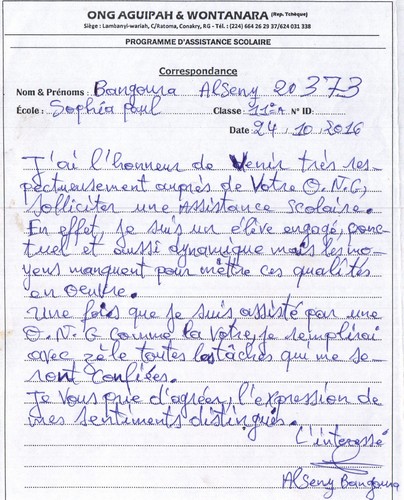 ONG AGUIPAH & WONTANARA (Rep. Tchèque)
Siège : Lambanyi-wariah, C/Ratoma, Conakry, RG - Tél. : (224) 664 26 29 37/624 031 338
PROGRAMME D'ASSISTANCE SCOLAIRE
Correspondance
Nom & Prénoms : Bangoura Alseny 20 373
École : Sophéa paul Classe : 11e A N° ID:
Date 24. 10. 2016
J'ai l'honneur de venir très res-
pectueusement auprès de Votre O.N.G,
solliciter une Assistance Scolaire.
En effet, je suis un élève engagé, ponc-
tuel et aussi dynamique mais les mo-
yens manquent pour mèttre ces qualités
en oeuvre.
Une fois que je suis assisté par une
O.N.G comme la Votre, je remplirai
avec zèle toutes les tâches qui me se-
ront Confiées.
Je Vous prie d'agréer, l'expression de
mes sentiments distingués.
L'interessé
Alseny Bangoura